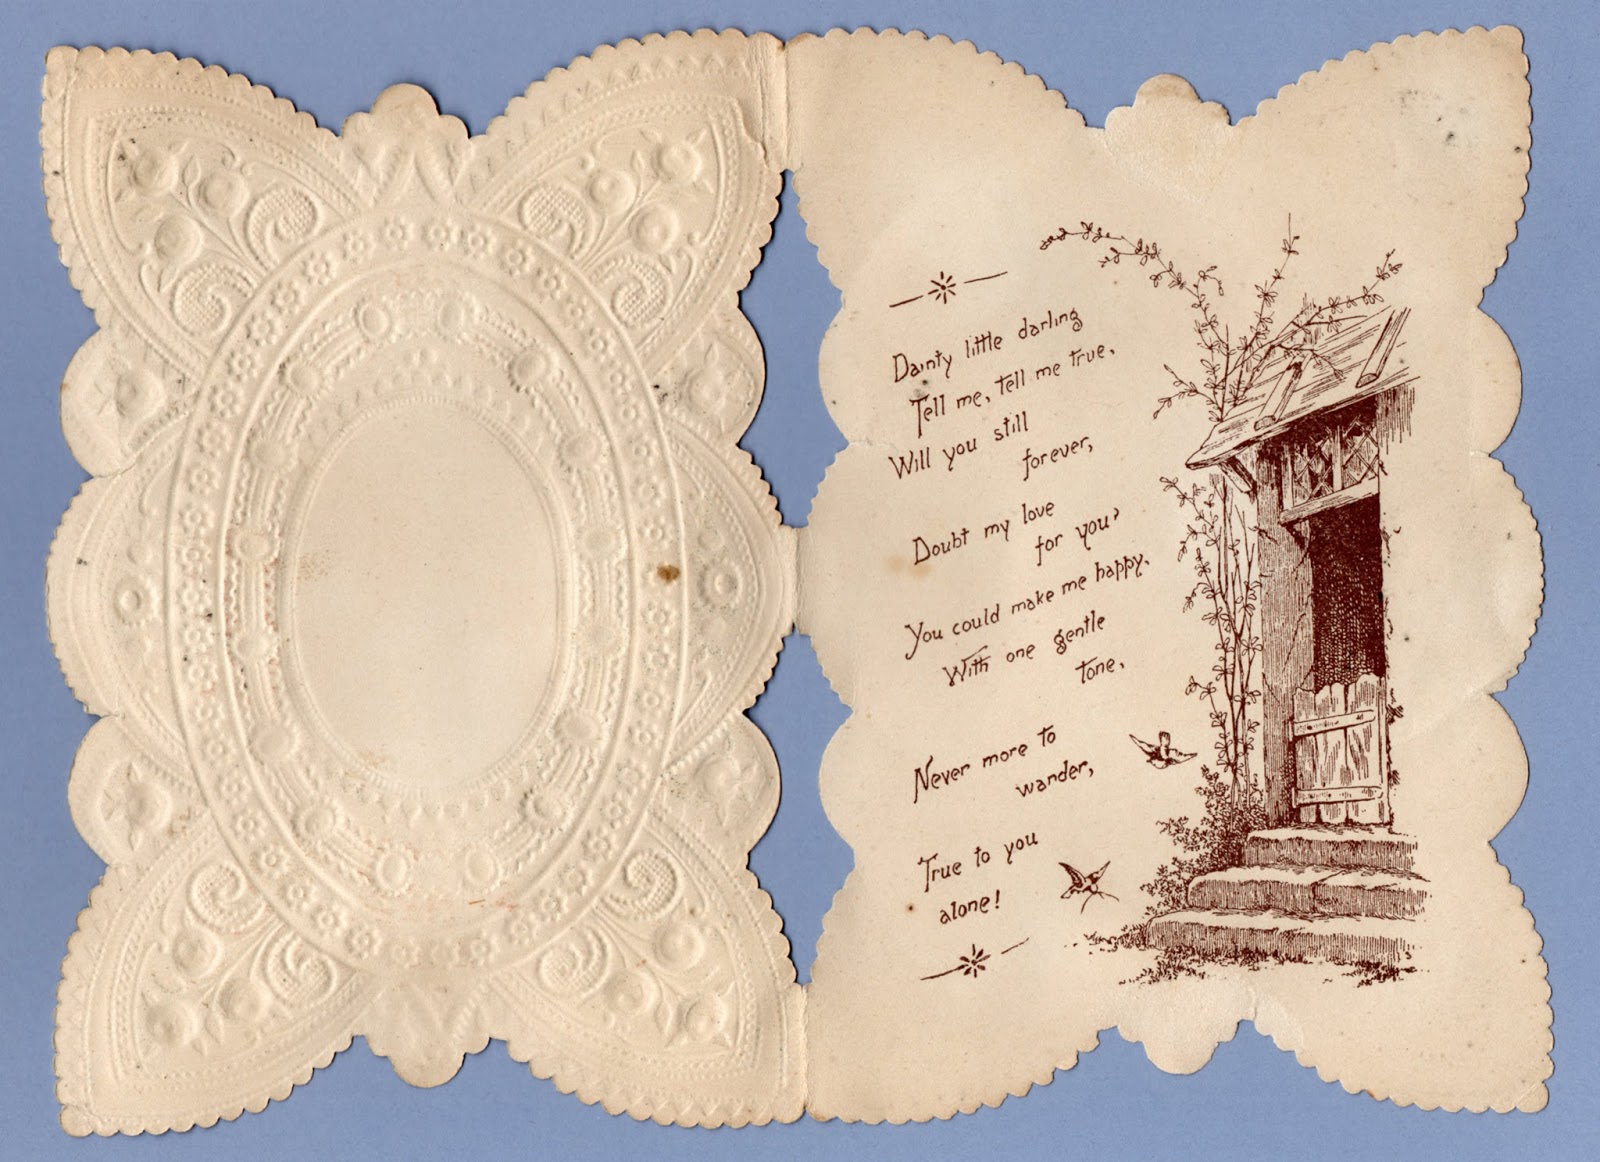 Dainty little darling
Tell me, tell me true,
Will you still
forever,
Doubt my love
for you?
You could make me happy,
With one gentle
tone,
Never more to
wander,
True to you
alone!